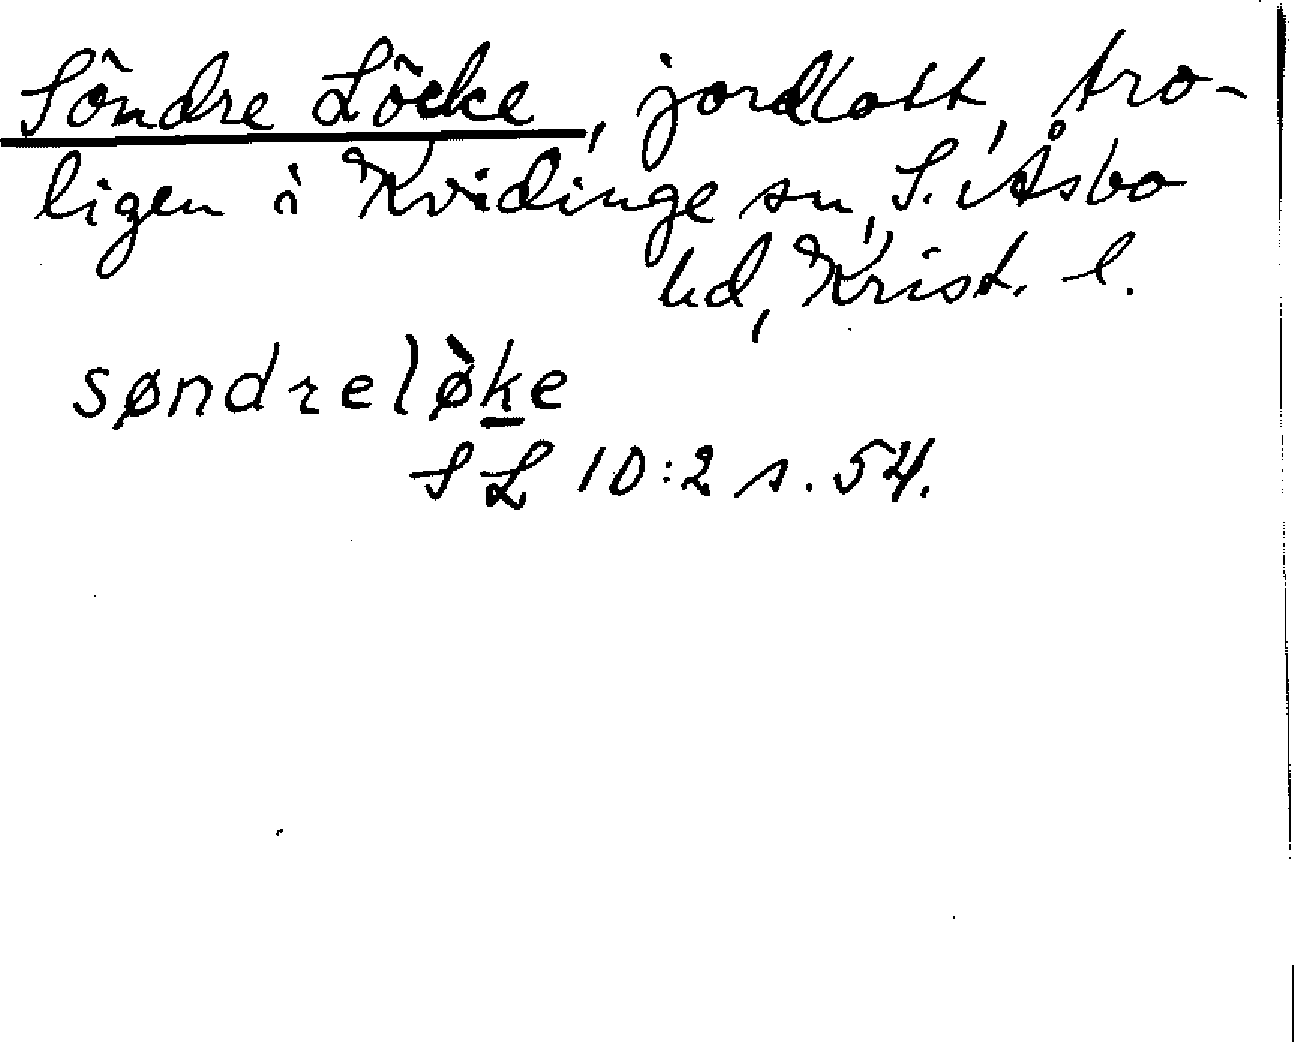 Söndre Löcke, jordlott, tro-
ligen i Kvidinge sn, S. Åsbo
hd, Krist. l.
søndrelø̀k̲e
SL 10:2 s. 54.